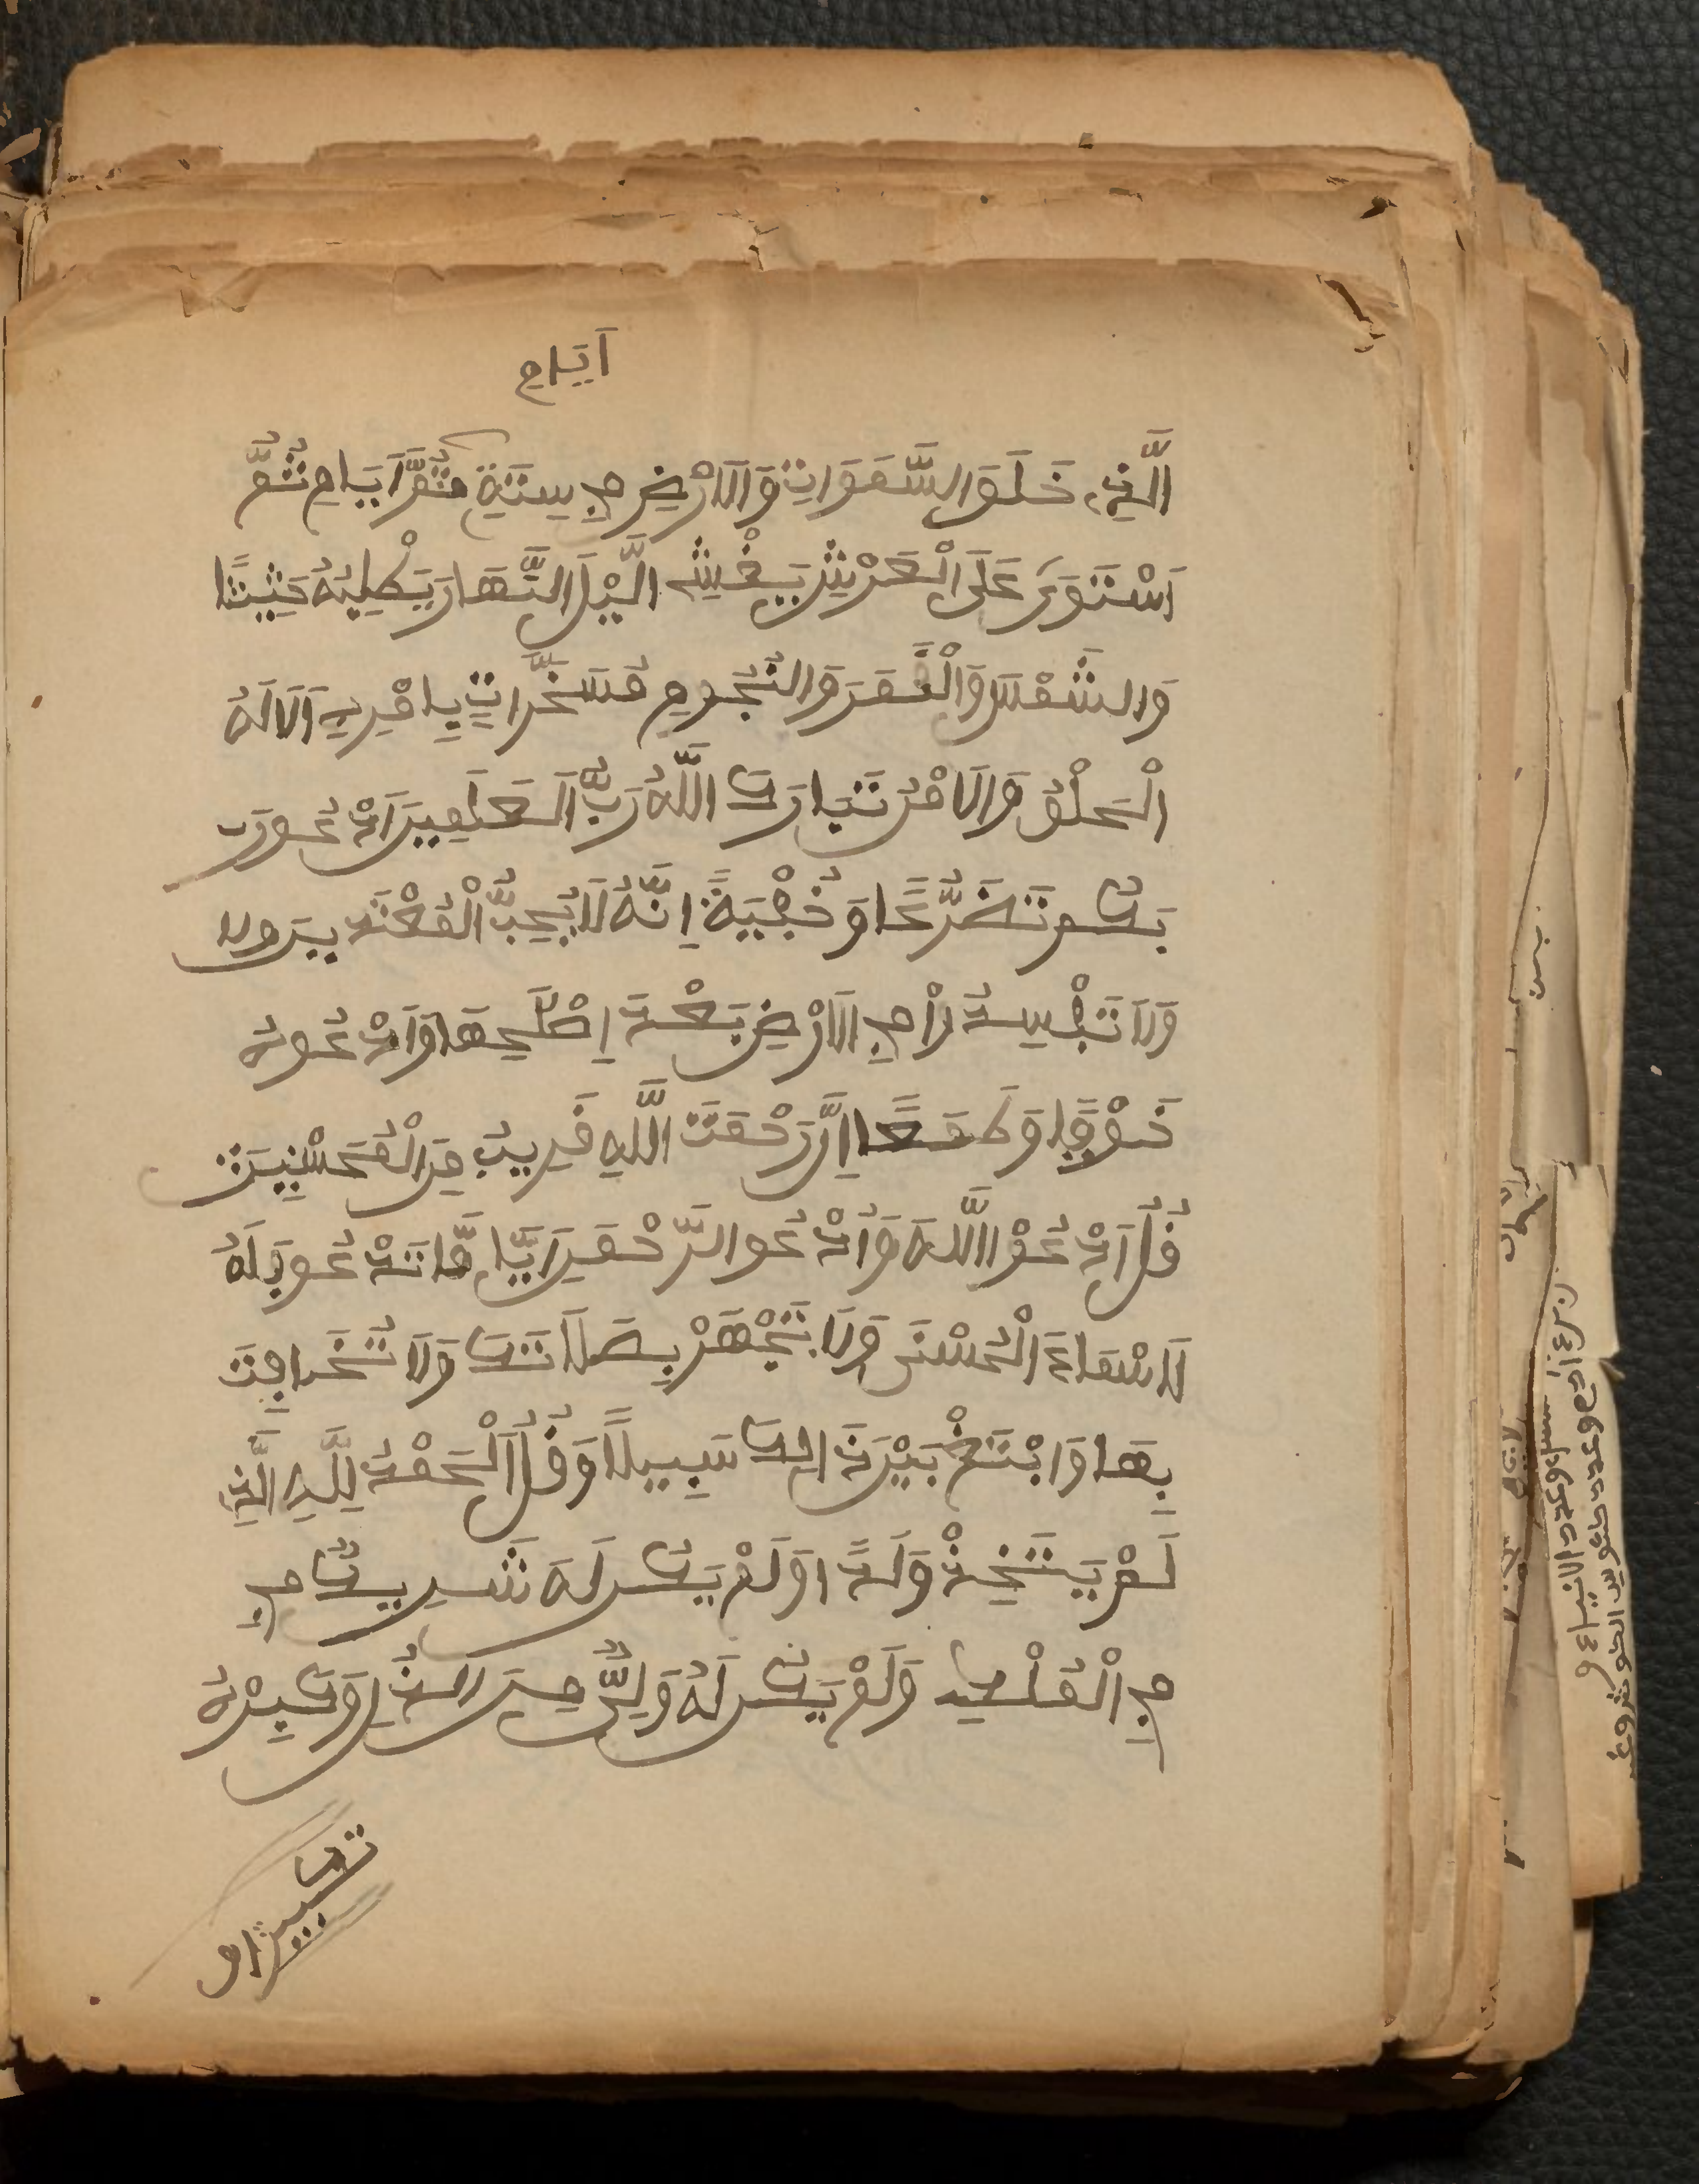 اَيَّامٍ
اَلَّذِے خَلَقَ السَّمَوَاتِ وَالَارْضِ فِے سِتَّةِ ثُمَّ اَيَّامٍ ثُمَّ
اَسْتَوَىٰ عَلَى الْعَرْشِ يَغْشِے الَّيْلَ النَّهَارَ يَطْلِبُهُ حَثِيثًا
وَالشَّمْسَ وَالْقَمَرَ وَالنُّجُومِ مُسَخَّرَاتٍ بِامْرِهِ اَلَا لَهُ
الْخَلْقُ وَالَامْرُ تَبَارَكَ اللَّهُ رَبُّ الْعَلَمِينَ اَدْعُورَب
بَكُم تَضَرُّعًا وَخُفْيَةً اِنَّهُ لَا يُحِبُّ الْمُعْتَدِينَ وَلا
وَلَا تَفْسِدُواْ فِے الَارْضِ بَعْدَ اِصْلَحِهَا وَادْعُوهُ
خَوْفًا وَطَمَعًا اِنَّ رَحْمَتَ اللَّهِ قَرِيبٌ مِنَ الْمُحْسِنِينَ
قُلُ اَدْعُوْا اللَّهَ وَاُدْعُوا الرَّحْمَنَ اَيًّا مَّا تَدْعُو فَلَهُ
لَاسْمَاءَ الْحُسْنَى وَلَا تَجْهَرْ بِصَلَاتَكَ وَلَا تُخَافِتَ
بِهَا وَابْتَغِ بَيْنَ ذَالِكَ سَبِيلًا وَقُلُ اَلْحَمْدُ لِلَّهِ الَّذِے
لَمْ يَتَّخِذْ وَلَدًا وَلَمْ يَكُن لَهُ شَرِيكٌ فِے
فِے الْمُلْكِ وَلَمْ يَكُن لَهُ وَلِيٌّ مِنَ الذُّلِ وَكَبِرْهُ
تكبيرا